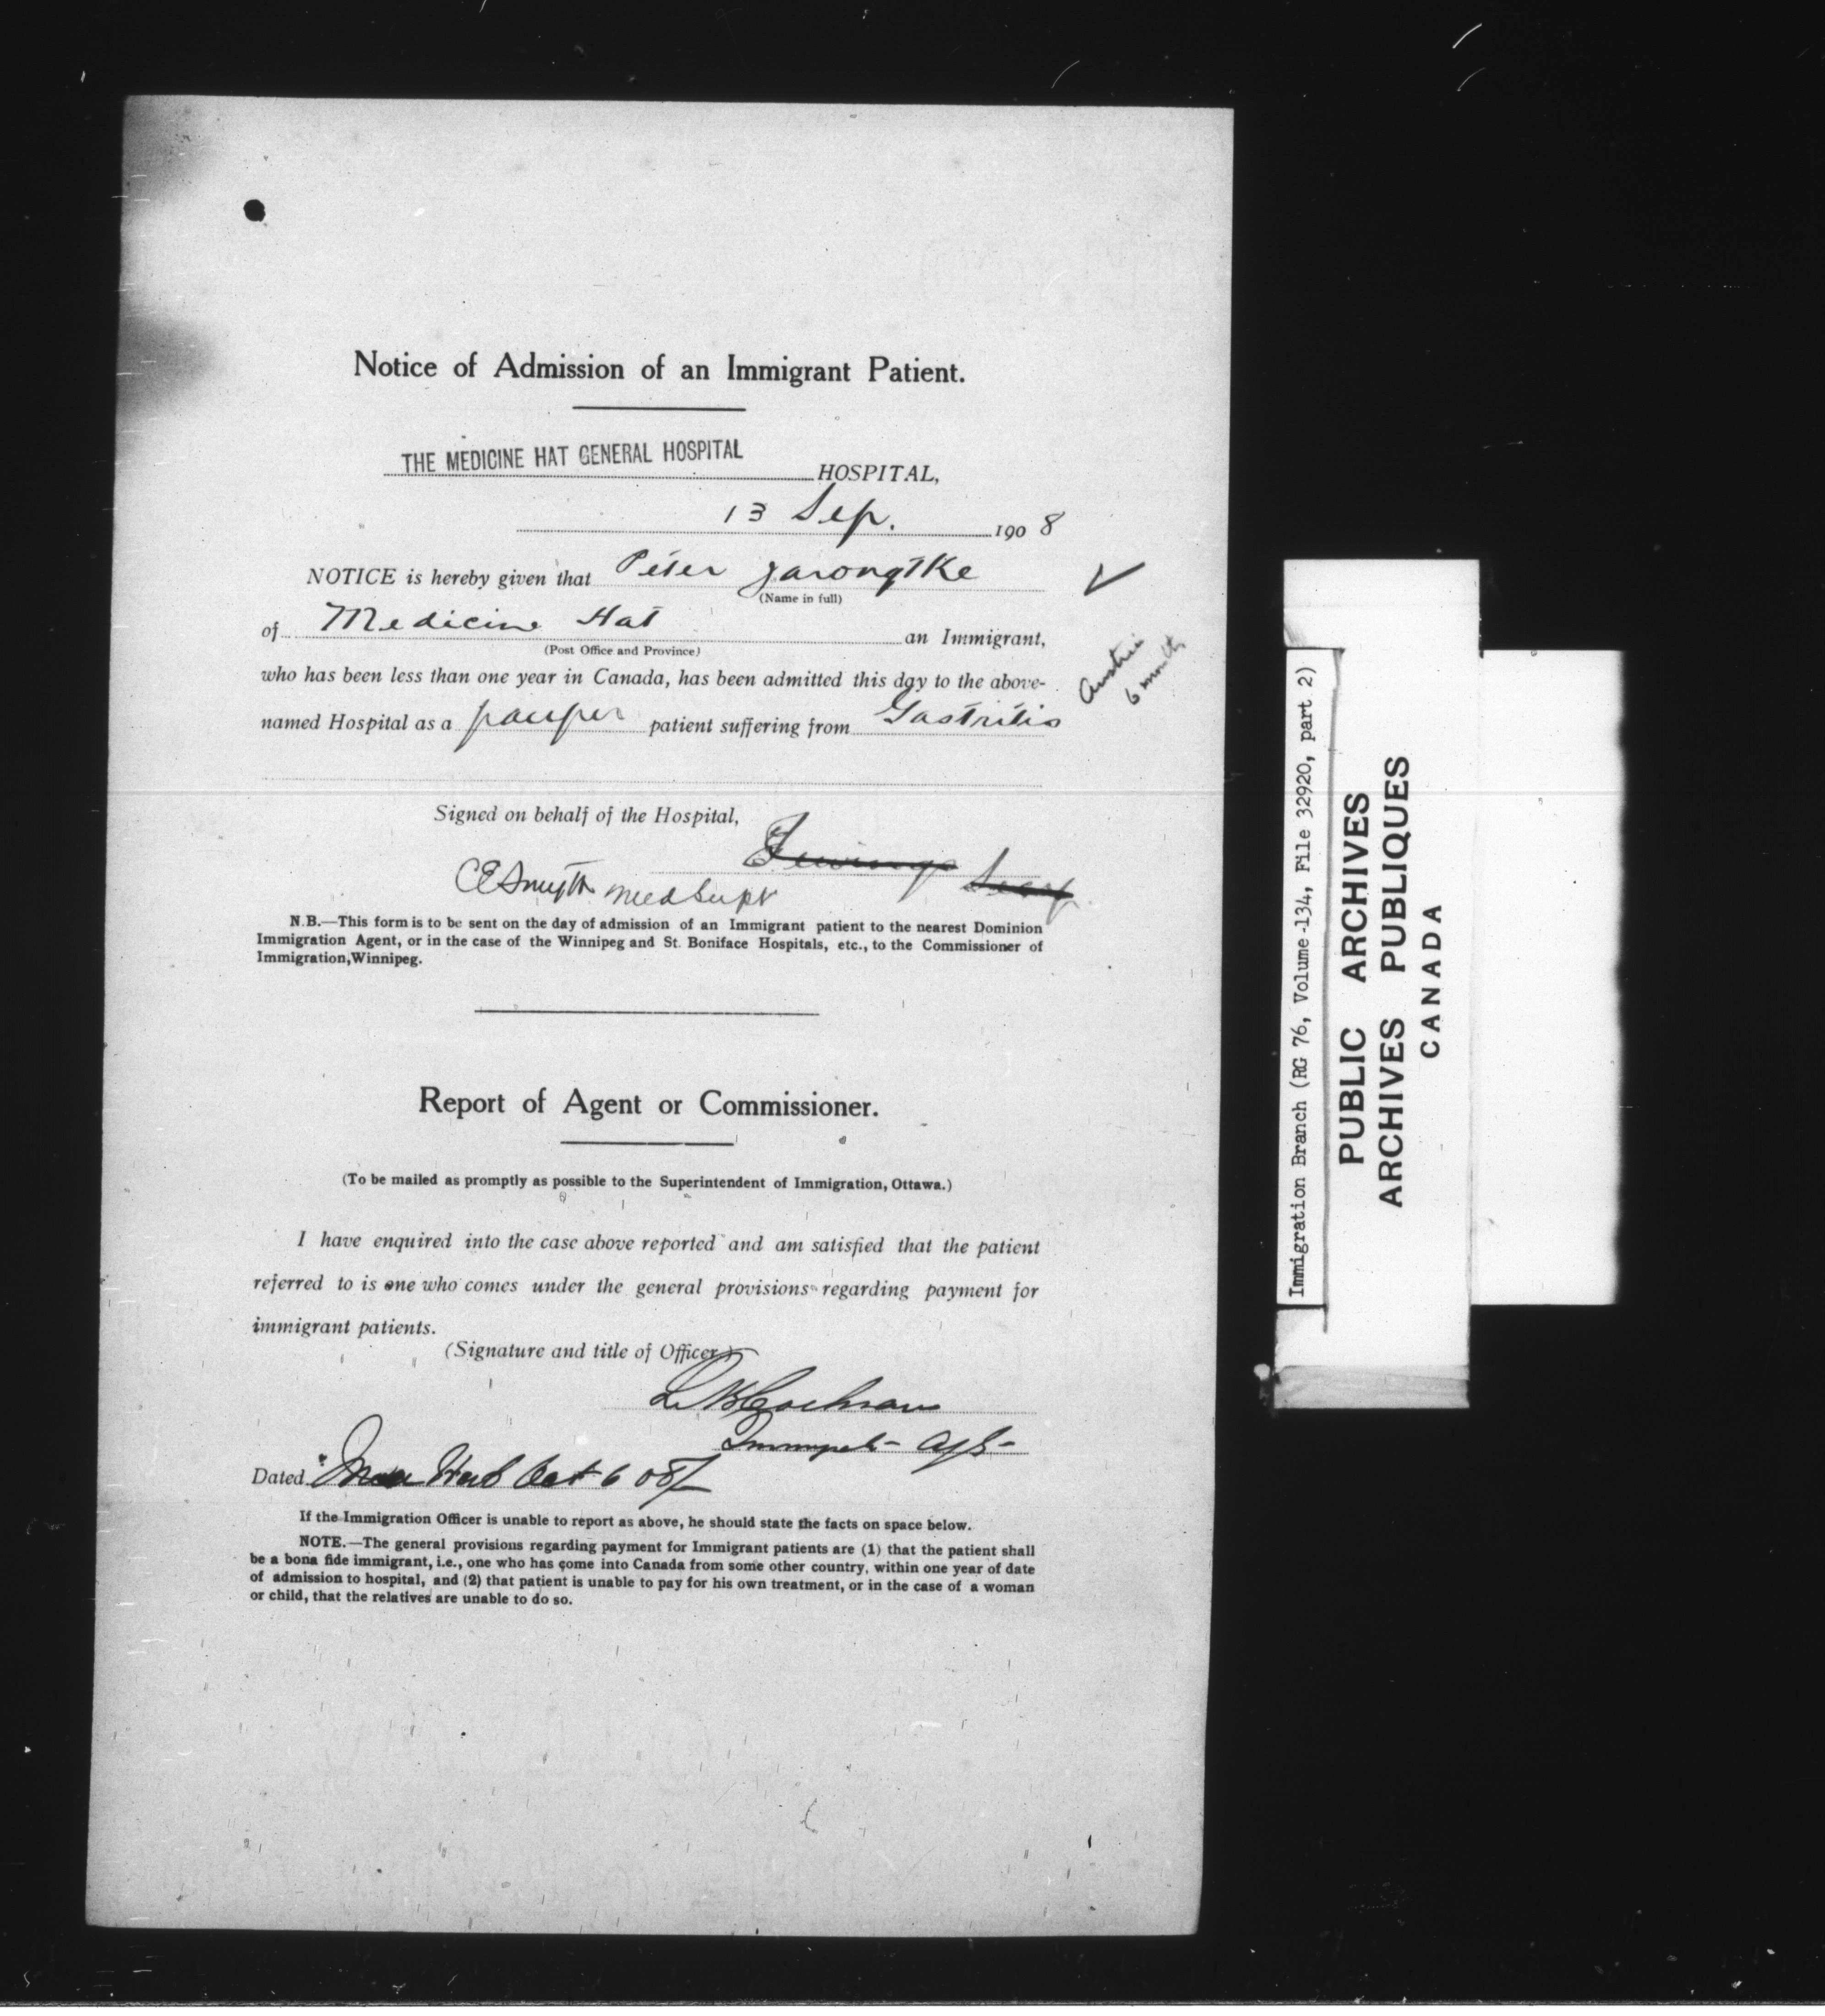 Notice of Admission of an Immigrant Patient.
THE MEDICINE HAT GENERAL HOSPITAL
HOSPITAL,
13 Sep. 1908
NOTICE is hereby given that Peter
(Name in full)
of Medicine Hat an Immigrant,
(Post Office and Province)
who has been less than one year in Canada, has been admitted this day to the above-
named Hospital as a pauper patient suffering from Gastritis
Austria
6 months
Signed on behalf of the Hospital,
CE Smyth Med Supt
N.B.—This form is to be sent on the day of admission of an Immigrant patient to the nearest Dominion
Immigration Agent, or in the case of the Winnipeg and St. Boniface Hospitals, etc., to the Commissioner of
Immigration, Winnipeg.
Report of Agent or Commissioner.
(To be mailed as promptly as possible to the Superintendent of Immigration, Ottawa.)
I have enquired into the case above reported and am satisfied that the patient
referred to is one who comes under the general provisions regarding payment for
immigrant patients.
(Signature and title of Officer.)
Cochran
Agt
Dated Hat Oct 6 08
If the Immigration Officer is unable to report as above, he should state the facts on space below.
NOTE.—The general provisions regarding payment for Immigrant patients are (1) that the patient shall
be a bona fide immigrant, i.e., one who has come into Canada from some other country, within one year of date
of admission to hospital, and (2) that patient is unable to pay for his own treatment, or in the case of a woman
or child, that the relatives are unable to do so.
Immigration Branch (RG 76, Volume 134, File 32920, part 2)
PUBLIC ARCHIVES
ARCHIVES PUBLIQUES
CANADA